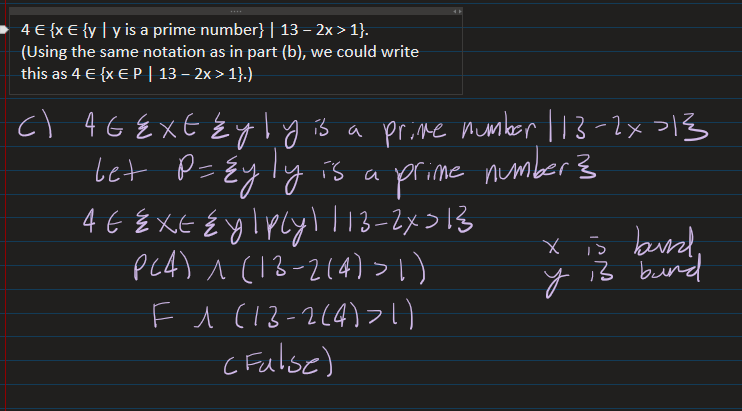 4 ∈ {x ∈ {y | y is a prime number} | 13 – 2x > 1}.
(Using the same notation as in part (b), we could write
this as 4 ∈ {x ∈ P | 13 – 2x > 1}.)
c) 4 ∈ {x ∈ {y | y is a prime number | 13 - 2x > 1}
Let P = {y | y is a prime number}
4 ∈ {x ∈ {y | P(y) | 13 - 2x > 1}
x is bund
P(4) ∧ (13 - 2(4) > 1)
y is bund
F ∧ (13 - 2(4) > 1)
(False)